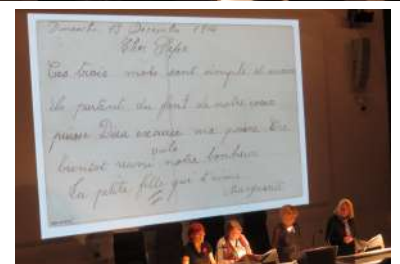 Dimanche 13 Decembre 1914
Cher Papa
Ces trois mots sont simple et
ils partent du fond de notre coeur
puisse Dieu exaucer ma prière être
vite
bientot reuni notre bonheur
Ta petite fille qui t'aime
Marguerite